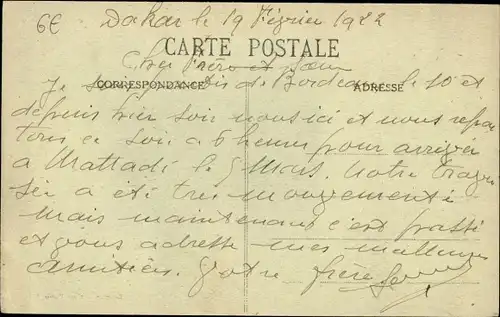 6E
Dakar le 19 Février 1922
CARTE POSTALE
Cher Frère et Sœur
CORRESPONDANCE
ADRESSE
Je suis partis de Bordeaux le 10 et
depuis hier soir nous ici et nous repar
tons ce soir a 6 heures pour arriver
a Mattadi le 5 Mars. Notre traver
sée a été tres mouvementé
Mais maintenant c'est passé
et vous adresse mes meilleures
Amitiés. Votre frère